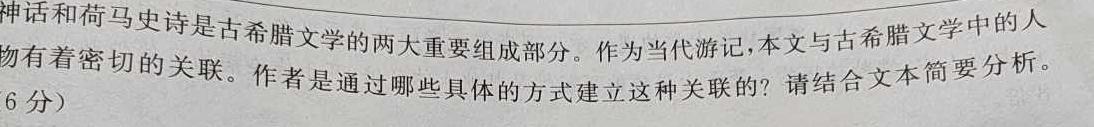 神话和荷马史诗是古希腊文学的两大重要组成部分。作为当代游记,本文与古希腊文学中的人
物有着密切的关联。作者是通过哪些具体的方式建立这种关联的?请结合文本简要分析。
(6分)